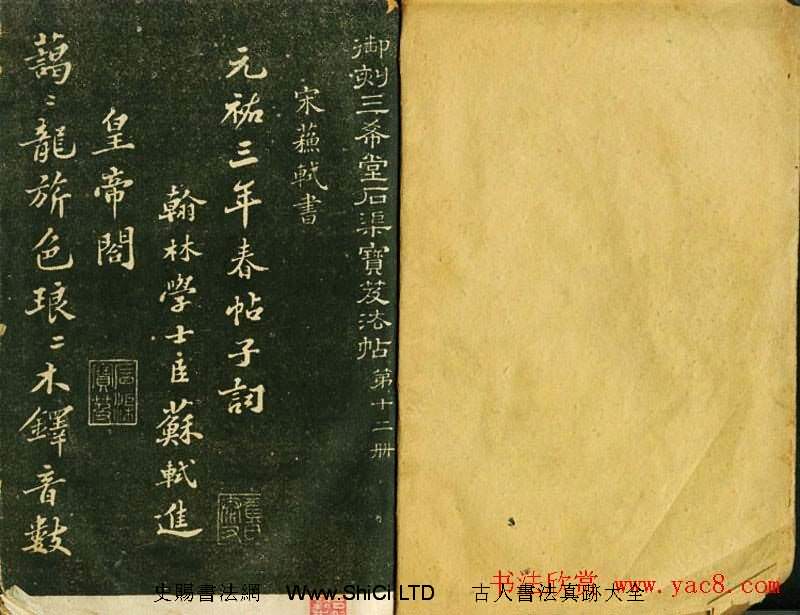 御刻三希堂石渠寶笈法帖 第十二册
宋蘇軾書
元祐三年春帖子詞
翰林學士臣蘇軾進
皇帝閣
藹〻龍旂色琅〻木鐸音數
史賜書法網 www.ShiCi LTD 古人書法真跡大全
书法欣赏 www.yac8.com